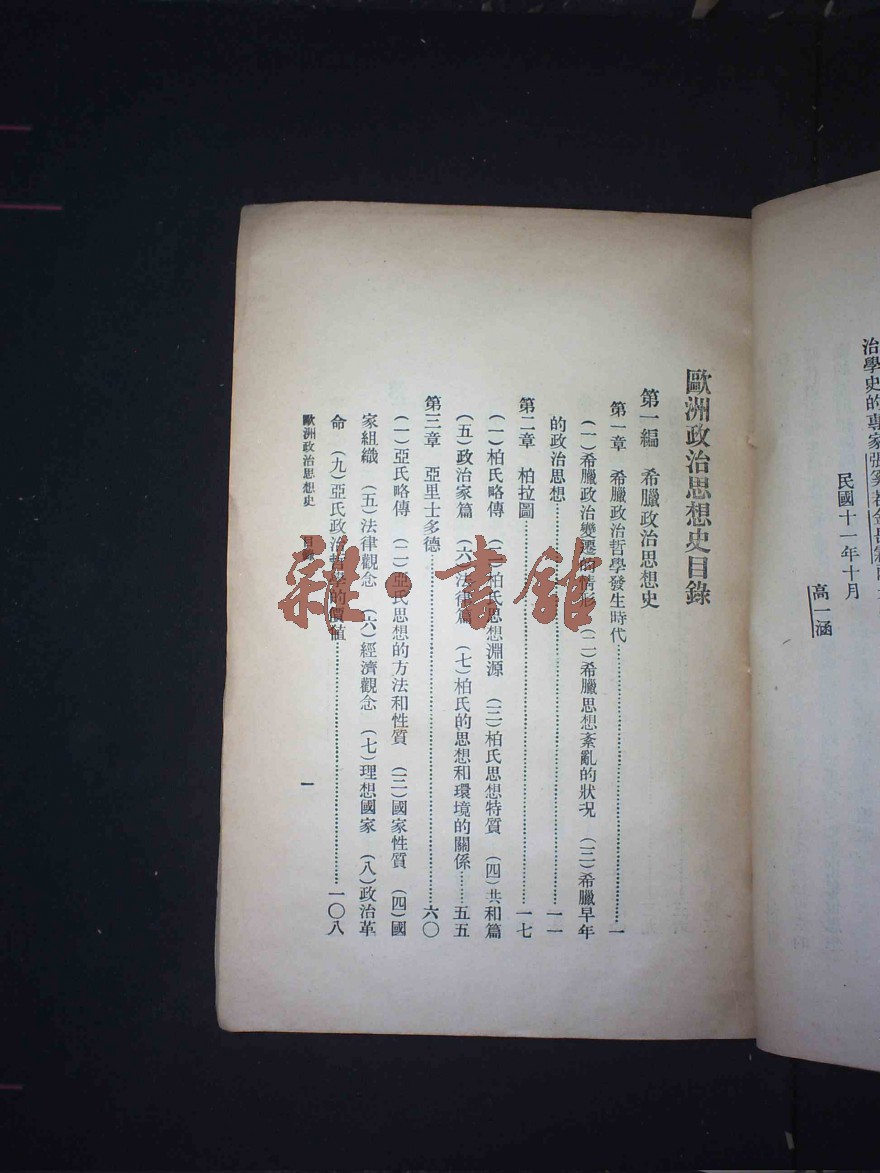 治學史的專家張奚若金岳霖
民國十一年十月
高一涵
歐洲政治思想史目錄
第一編 希臘政治思想史
第一章 希臘政治哲學發生時代……一
(一)希臘政治變遷的情形 (二)希臘思想紊亂的狀況 (三)希臘早年
的政治思想……一一
第二章 柏拉圖……一七
(一)柏氏略傳 (二)柏氏思想淵源 (三)柏氏思想特質 (四)共和篇
(五)政治家篇 (六)法律篇 (七)柏氏的思想和環境的關係……五五
第三章 亞里士多德……六〇
(一)亞氏略傳 (二)亞氏思想的方法和性質 (三)國家性質 (四)國
家組織 (五)法律觀念 (六)經濟觀念 (七)理想國家 (八)政治革
命 (九)亞氏政治哲學的價值……一〇八
歐洲政治思想史 目錄 一
雜·書館